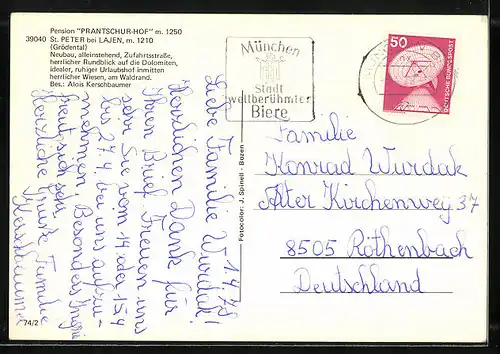 Pension "PRANTSCHUR-HOF" m. 1250
39040 St. PETER bei LAJEN, m. 1210
(Grödental)
Neubau, alleinstehend, Zufahrtsstraße,
herrlicher Rundblick auf die Dolomiten,
idealer, ruhiger Urlaubshof inmitten
herrlicher Wiesen, am Waldrand.
Bes.: Alois Kerschbaumer
1.4.78
Liebe Familie Wurdak!
Herzlichen Dank für
Ihren Brief. Freuen uns
sehr Sie vom 14 oder 15.4
bis 27.4. bei uns aufzu-
nehmen. Besonders
freut sich
Herzliche Grüße Familie
Kerschbaumer
74/2
Fotocolor: J. Spinell - Bozen
München
Stadt
weltberühmter
Biere
50
DEUTSCHE BUNDESPOST
Familie
Konrad Wurdak
Alter Kirchenweg 37
8505 Röthenbach
Deutschland